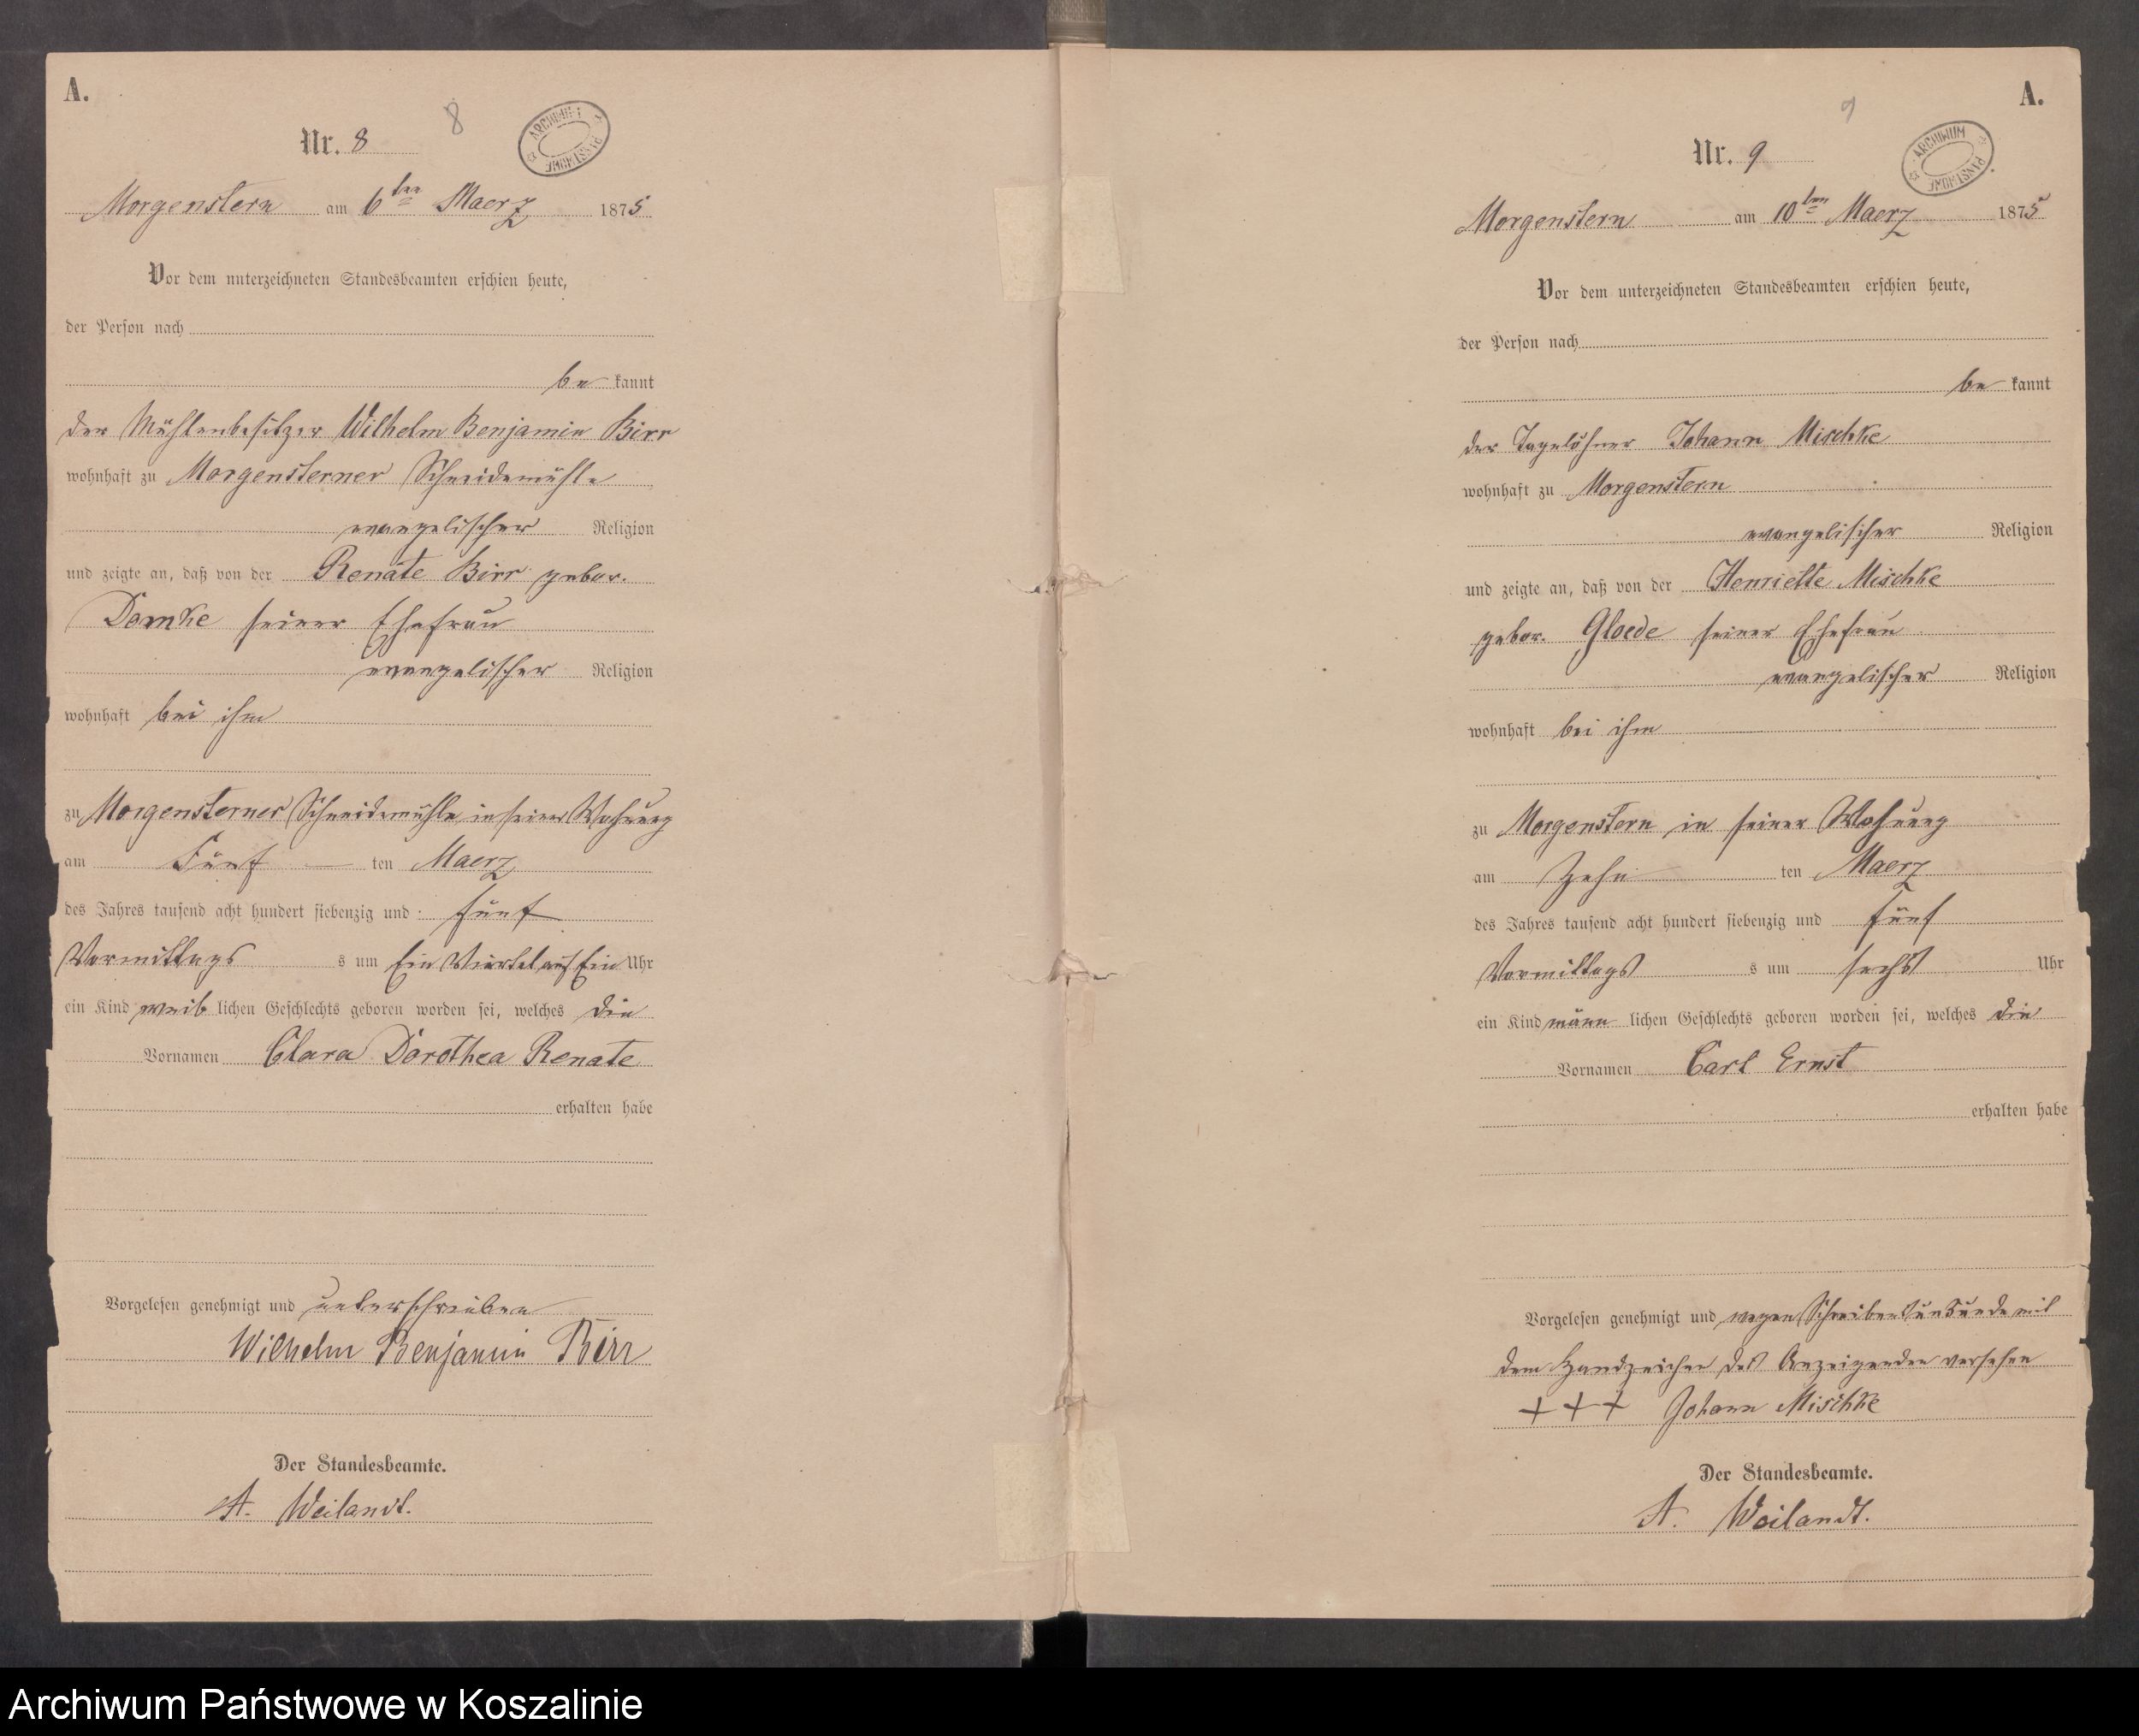 A.
Nr. 8
8
ARCHIWUM PAŃSTWOWE
Morgenstern am 6ten Maerz 1875
Vor dem unterzeichneten Standesbeamten erschien heute,
der Person nach
be kannt
der Mühlenbesitzer Wilhelm Benjamin Birr
wohnhaft zu Morgensterner Schneidemühle
evangelischer Religion
und zeigte an, daß von der Renate Birr gebor.
Damke seiner Ehefrau
evangelischer Religion
wohnhaft bei ihm
zu Morgensterner Schneidemühle in seiner Wohnung
am Fünf ten Maerz
des Jahres tausend acht hundert siebenzig und fünf
Vormittags s um Ein Viertel auf Ein Uhr
ein Kind weib lichen Geschlechts geboren worden sei, welches die
Vornamen Clara Dorothea Renate
erhalten habe
Vorgelesen genehmigt und unterschrieben
Wilhelm Benjamin Birr
Der Standesbeamte.
A. Weilandt.
A.
9
Nr. 9
ARCHIWUM PAŃSTWOWE
Morgenstern am 10ten Maerz 1875
Vor dem unterzeichneten Standesbeamten erschien heute,
der Person nach
be kannt
der Tagelöhner Johann Mischke
wohnhaft zu Morgenstern
evangelischer Religion
und zeigte an, daß von der Henriette Mischke
gebor. Gloede seiner Ehefrau
evangelischer Religion
wohnhaft bei ihm
zu Morgenstern in seiner Wohnung
am Zehn ten Maerz
des Jahres tausend acht hundert siebenzig und fünf
Vormittags s um sechs Uhr
ein Kind männ lichen Geschlechts geboren worden sei, welches die
Vornamen Carl Ernst
erhalten habe
Vorgelesen genehmigt und wegen Schreibensunkunde mit
dem Handzeichen des Anzeigenden versehen
+ + + Johann Mischke
Der Standesbeamte.
A. Weilandt.
Archiwum Państwowe w Koszalinie